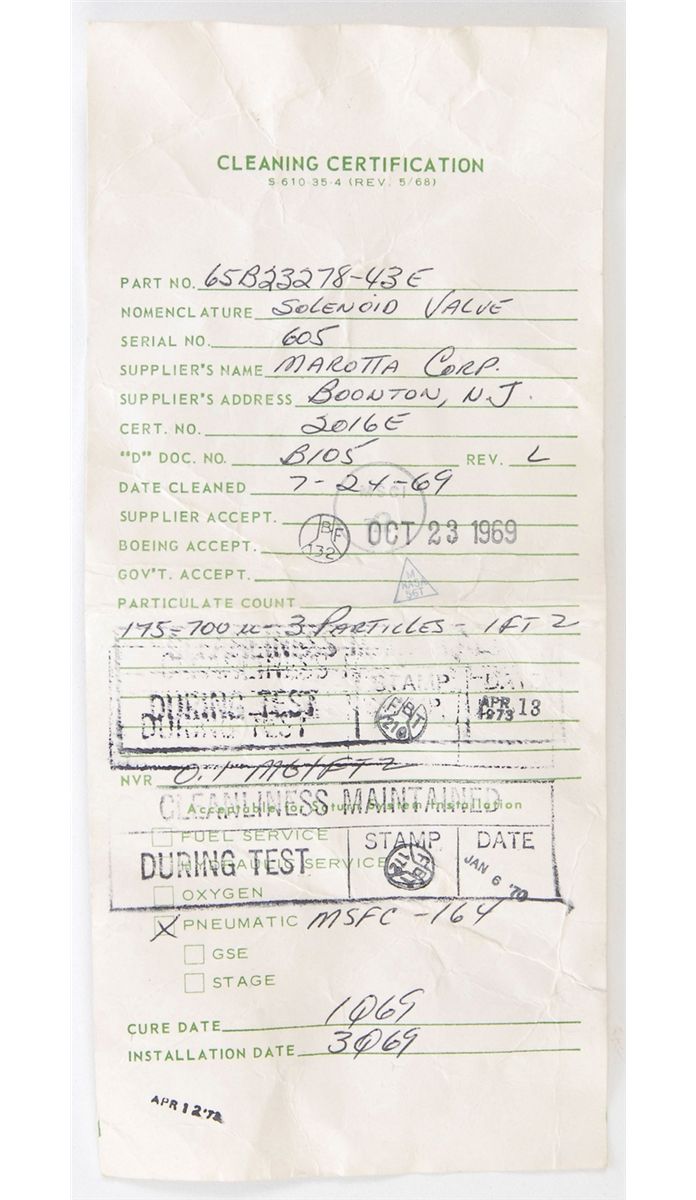 CLEANING CERTIFICATION
S 610-35-4 (REV. 5/68)
PART NO. 65B23278-43E
NOMENCLATURE SOLENOID VALVE
SERIAL NO. 605
SUPPLIER'S NAME MAROTTA CORP.
SUPPLIER'S ADDRESS BOONTON, N.J.
CERT. NO. 2016E
"D" DOC. NO. B105 REV. L
DATE CLEANED 7-24-69
SUPPLIER ACCEPT.
BF 132 OCT 23 1969
BOEING ACCEPT.
GOV'T. ACCEPT.
M NASA
PARTICULATE COUNT
175-700 µ - 3 PARTICLES - 1 FT 2
STAMP DATE
DURING TEST FBT 210 APR 13 1973
DURING TEST
NVR 0.1 MG/FT 2
CLEANLINESS MAINTAINED
Acceptable for Saturn System Installation
FUEL SERVICE
STAMP DATE
DURING TEST JAN 6 '70
HYDRAULIC SERVICE
OXYGEN
X PNEUMATIC MSFC-164
GSE
STAGE
CURE DATE 1Q69
INSTALLATION DATE 3Q69
APR 12 '72